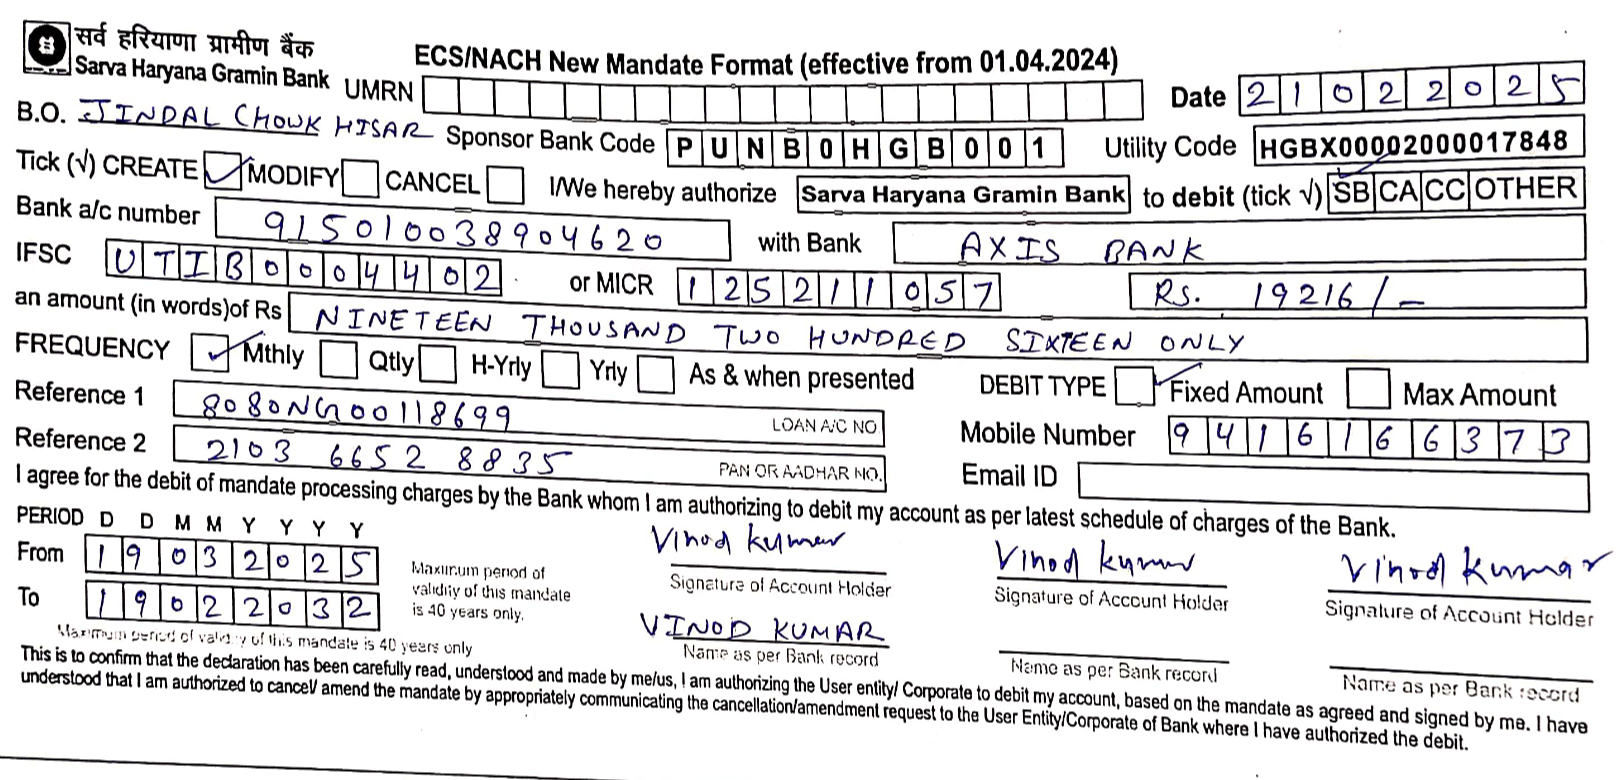 सर्व हरियाणा ग्रामीण बैंक
Sarva Haryana Gramin Bank
ECS/NACH New Mandate Format (effective from 01.04.2024)
UMRN
Date 21022025
B.O. JINDAL CHOWK HISAR Sponsor Bank Code PUNB0HGB001 Utility Code HGBX00002000017848
Tick (√) CREATE ✓ MODIFY CANCEL I/We hereby authorize Sarva Haryana Gramin Bank to debit (tick √) ✓ SB CA CC OTHER
Bank a/c number 915010038904620 with Bank AXIS BANK
IFSC UTIB0004402 or MICR 125211057 RS. 19216/-
an amount (in words)of Rs NINETEEN THOUSAND TWO HUNDRED SIXTEEN ONLY
FREQUENCY ✓ Mthly Qtly H-Yrly Yrly As & when presented DEBIT TYPE ✓ Fixed Amount Max Amount
Reference 1 8080NG00118699 LOAN A/C NO Mobile Number 9416166373
Reference 2 2103 6652 8835 PAN OR AADHAR NO. Email ID
I agree for the debit of mandate processing charges by the Bank whom I am authorizing to debit my account as per latest schedule of charges of the Bank.
PERIOD D D M M Y Y Y Y
From 19032025
To 19022032
Maximum period of
validity of this mandate
is 40 years only.
Maximum period of validity of this mandate is 40 years only
Vinod kumar Vinod kumar Vinod kumar
Signature of Account Holder Signature of Account Holder Signature of Account Holder
VINOD KUMAR
Name as per Bank record Name as per Bank record Name as per Bank record
This is to confirm that the declaration has been carefully read, understood and made by me/us, I am authorizing the User entity/ Corporate to debit my account, based on the mandate as agreed and signed by me. I have
understood that I am authorized to cancel/ amend the mandate by appropriately communicating the cancellation/amendment request to the User Entity/Corporate of Bank where I have authorized the debit.